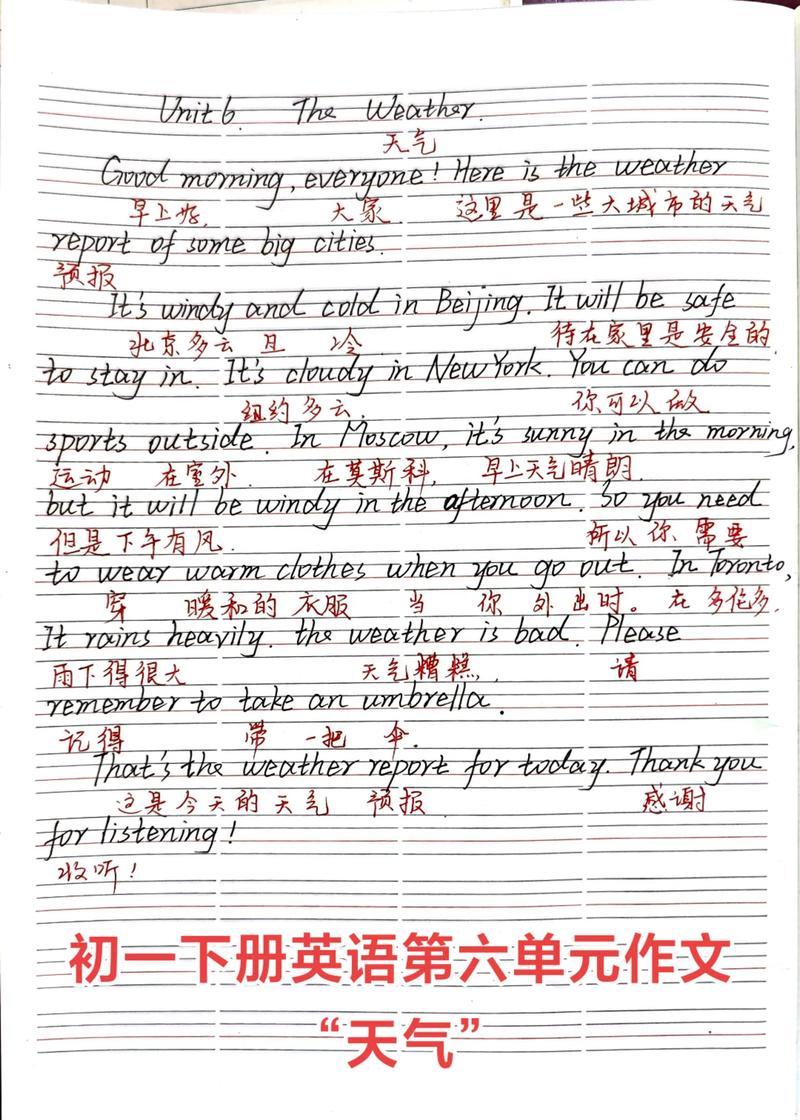 Unit 6. The Weather.
天气
Good morning, everyone! Here is the weather
早上好, 大家 这里是一些大城市的天气
report of some big cities.
预报
It's windy and cold in Beijing. It will be safe
北京多云 且 冷 待在家里是安全的
to stay in. It's cloudy in New York. You can do
纽约多云, 你可以做
sports outside. In Moscow, it's sunny in the morning,
运动 在室外. 在莫斯科, 早上天气晴朗
but it will be windy in the afternoon. So you need
但是下午有风. 所以 你 需要
to wear warm clothes when you go out. In Toronto,
穿 暖和的 衣服 当 你 外出时。 在 多伦多,
It rains heavily. the weather is bad. Please
雨下得很大 天气糟糕, 请
remember to take an umbrella.
记得 带 一把 伞.
That's the weather report for today. Thank you
这是今天的天气 预报 感谢
for listening!
收听!
初一下册英语第六单元作文
“天气”